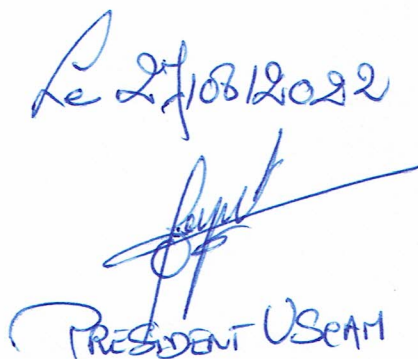 Le 27/08/2022
PRESIDENT USCAM